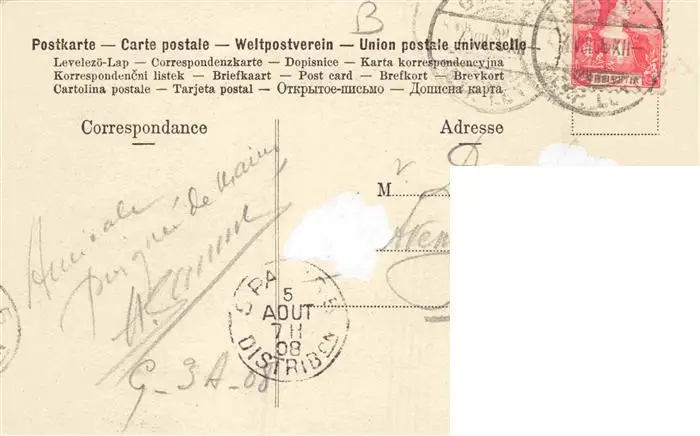 B
Postkarte — Carte postale — Weltpostverein — Union postale universelle
Levelező-Lap — Correspondenzkarte — Dopisnice — Karta korrespondencyjna
Korrespondenční listek — Briefkaart — Post card — Brefkort — Brevkort
Cartolina postale — Tarjeta postal — Открытое-письмо — Дописна карта
Correspondance
Adresse
HELVETIA
M
Amicale
poignée de main
5
AOUT
7 H
08
DISTRIBON
G_3A_08